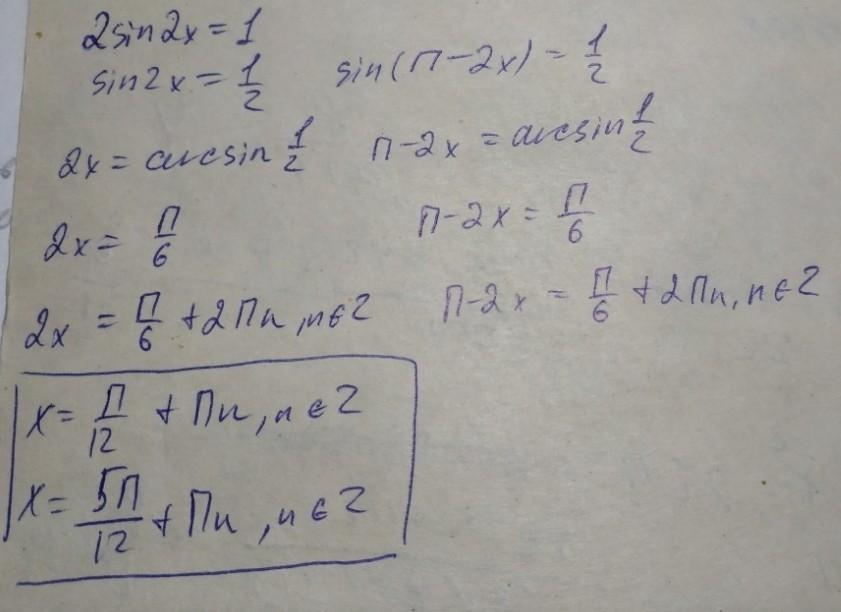 2sin2x = 1
sin2x = 1/2
sin(П-2x) = 1/2
2x = arcsin 1/2
П-2x = arcsin 1/2
2x = П/6
П-2x = П/6
2x = П/6 + 2Пn, n∈Z
П-2x = П/6 + 2Пn, n∈Z
x = П/12 + Пn, n∈Z
x = 5П/12 + Пn, n∈Z